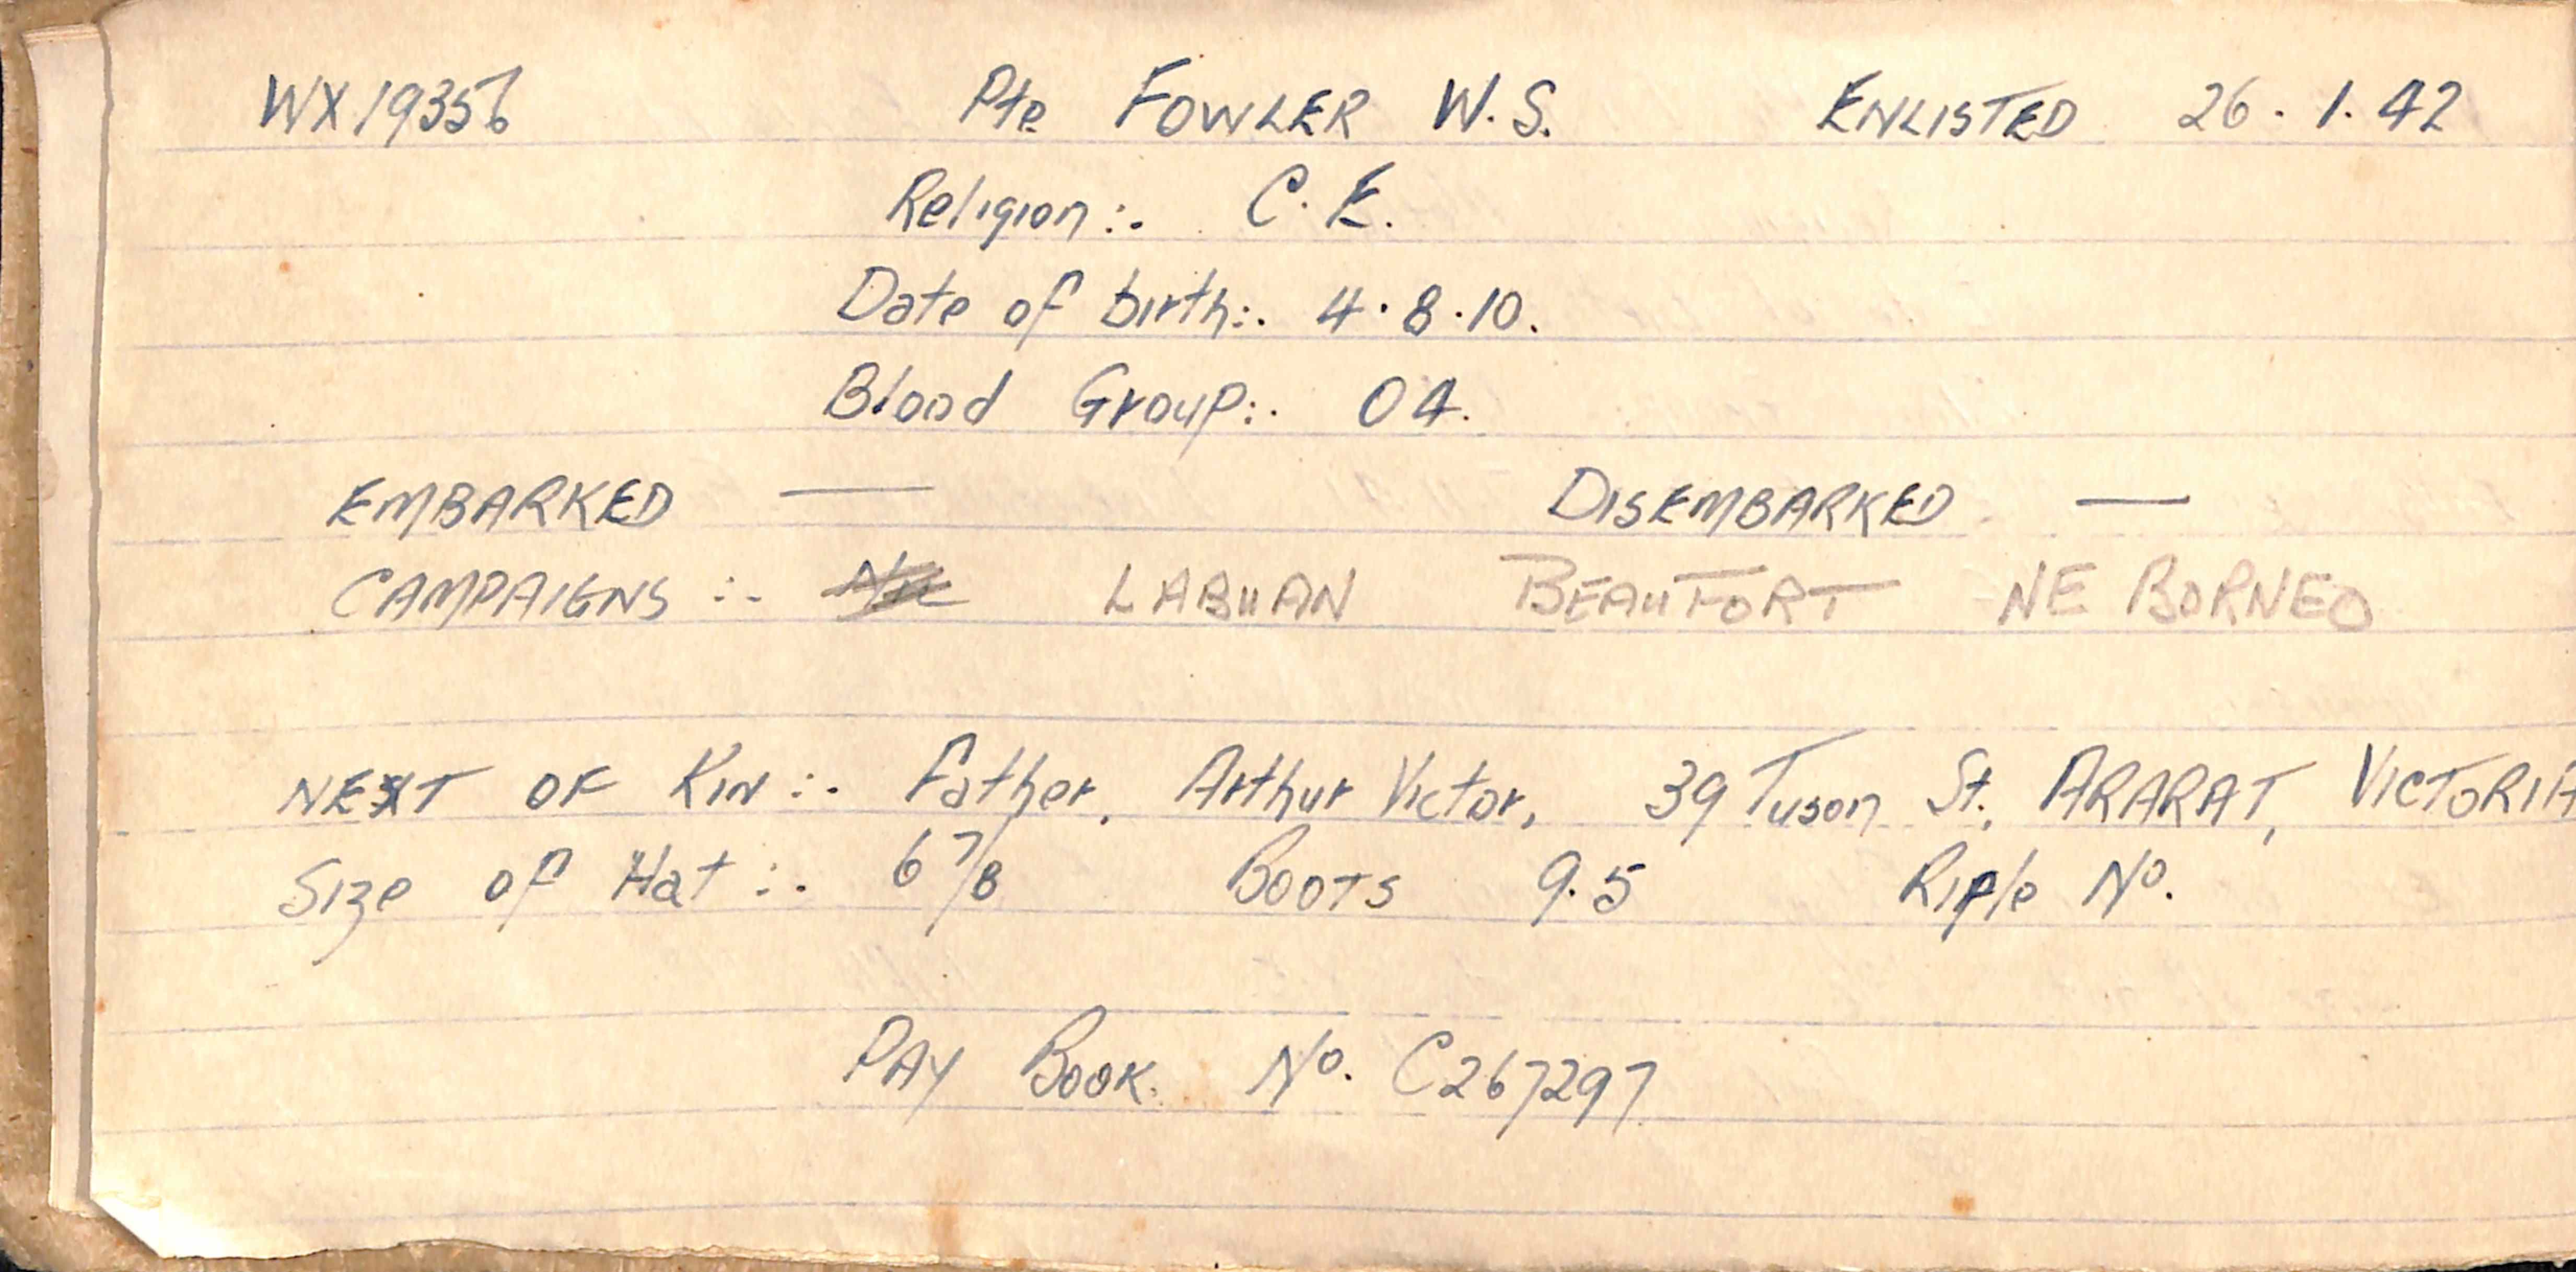 WX19356 Pte FOWLER W.S. ENLISTED 26.1.42
Religion:. C.E.
Date of birth:. 4.8.10.
Blood Group:. O4.
EMBARKED — DISEMBARKED —
CAMPAIGNS:. LABUAN BEAUFORT NE BORNEO
NEXT OF KIN:. Father, Arthur Victor, 39 Tuson St. ARARAT, VICTORIA
Size of Hat:. 6 7/8 BOOTS 9.5 Rifle No.
PAY BOOK. No. C267297